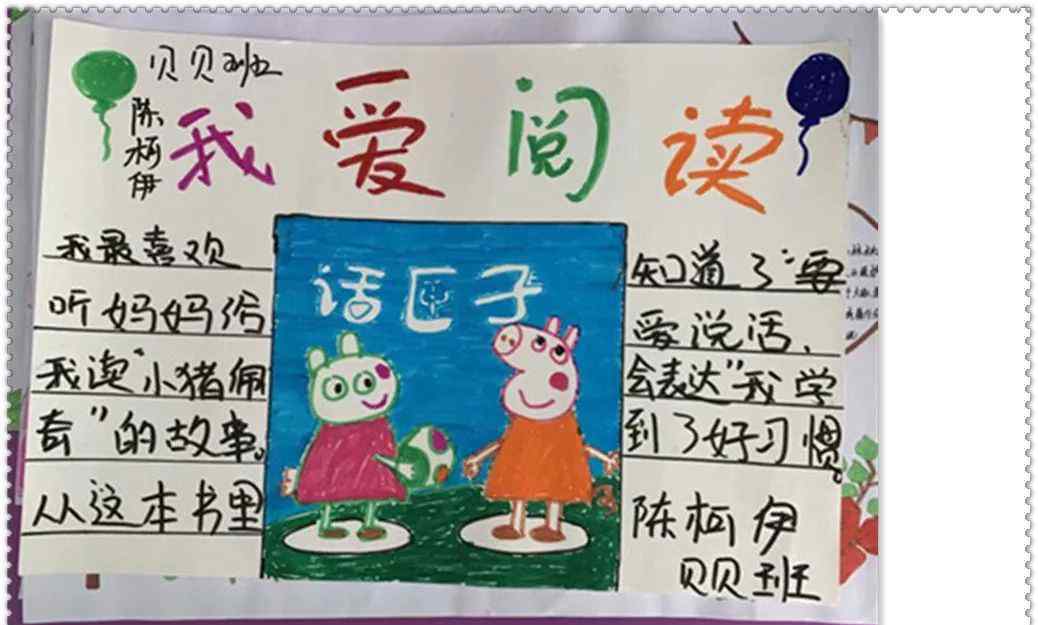 贝贝班
陈柯伊
我爱阅读
我最喜欢
听妈妈给
我读“小猪佩
奇”的故事。
从这本书里
话匣子
知道了“要
爱说话，
会表达”我学
到了好习惯。
陈柯伊
贝贝班